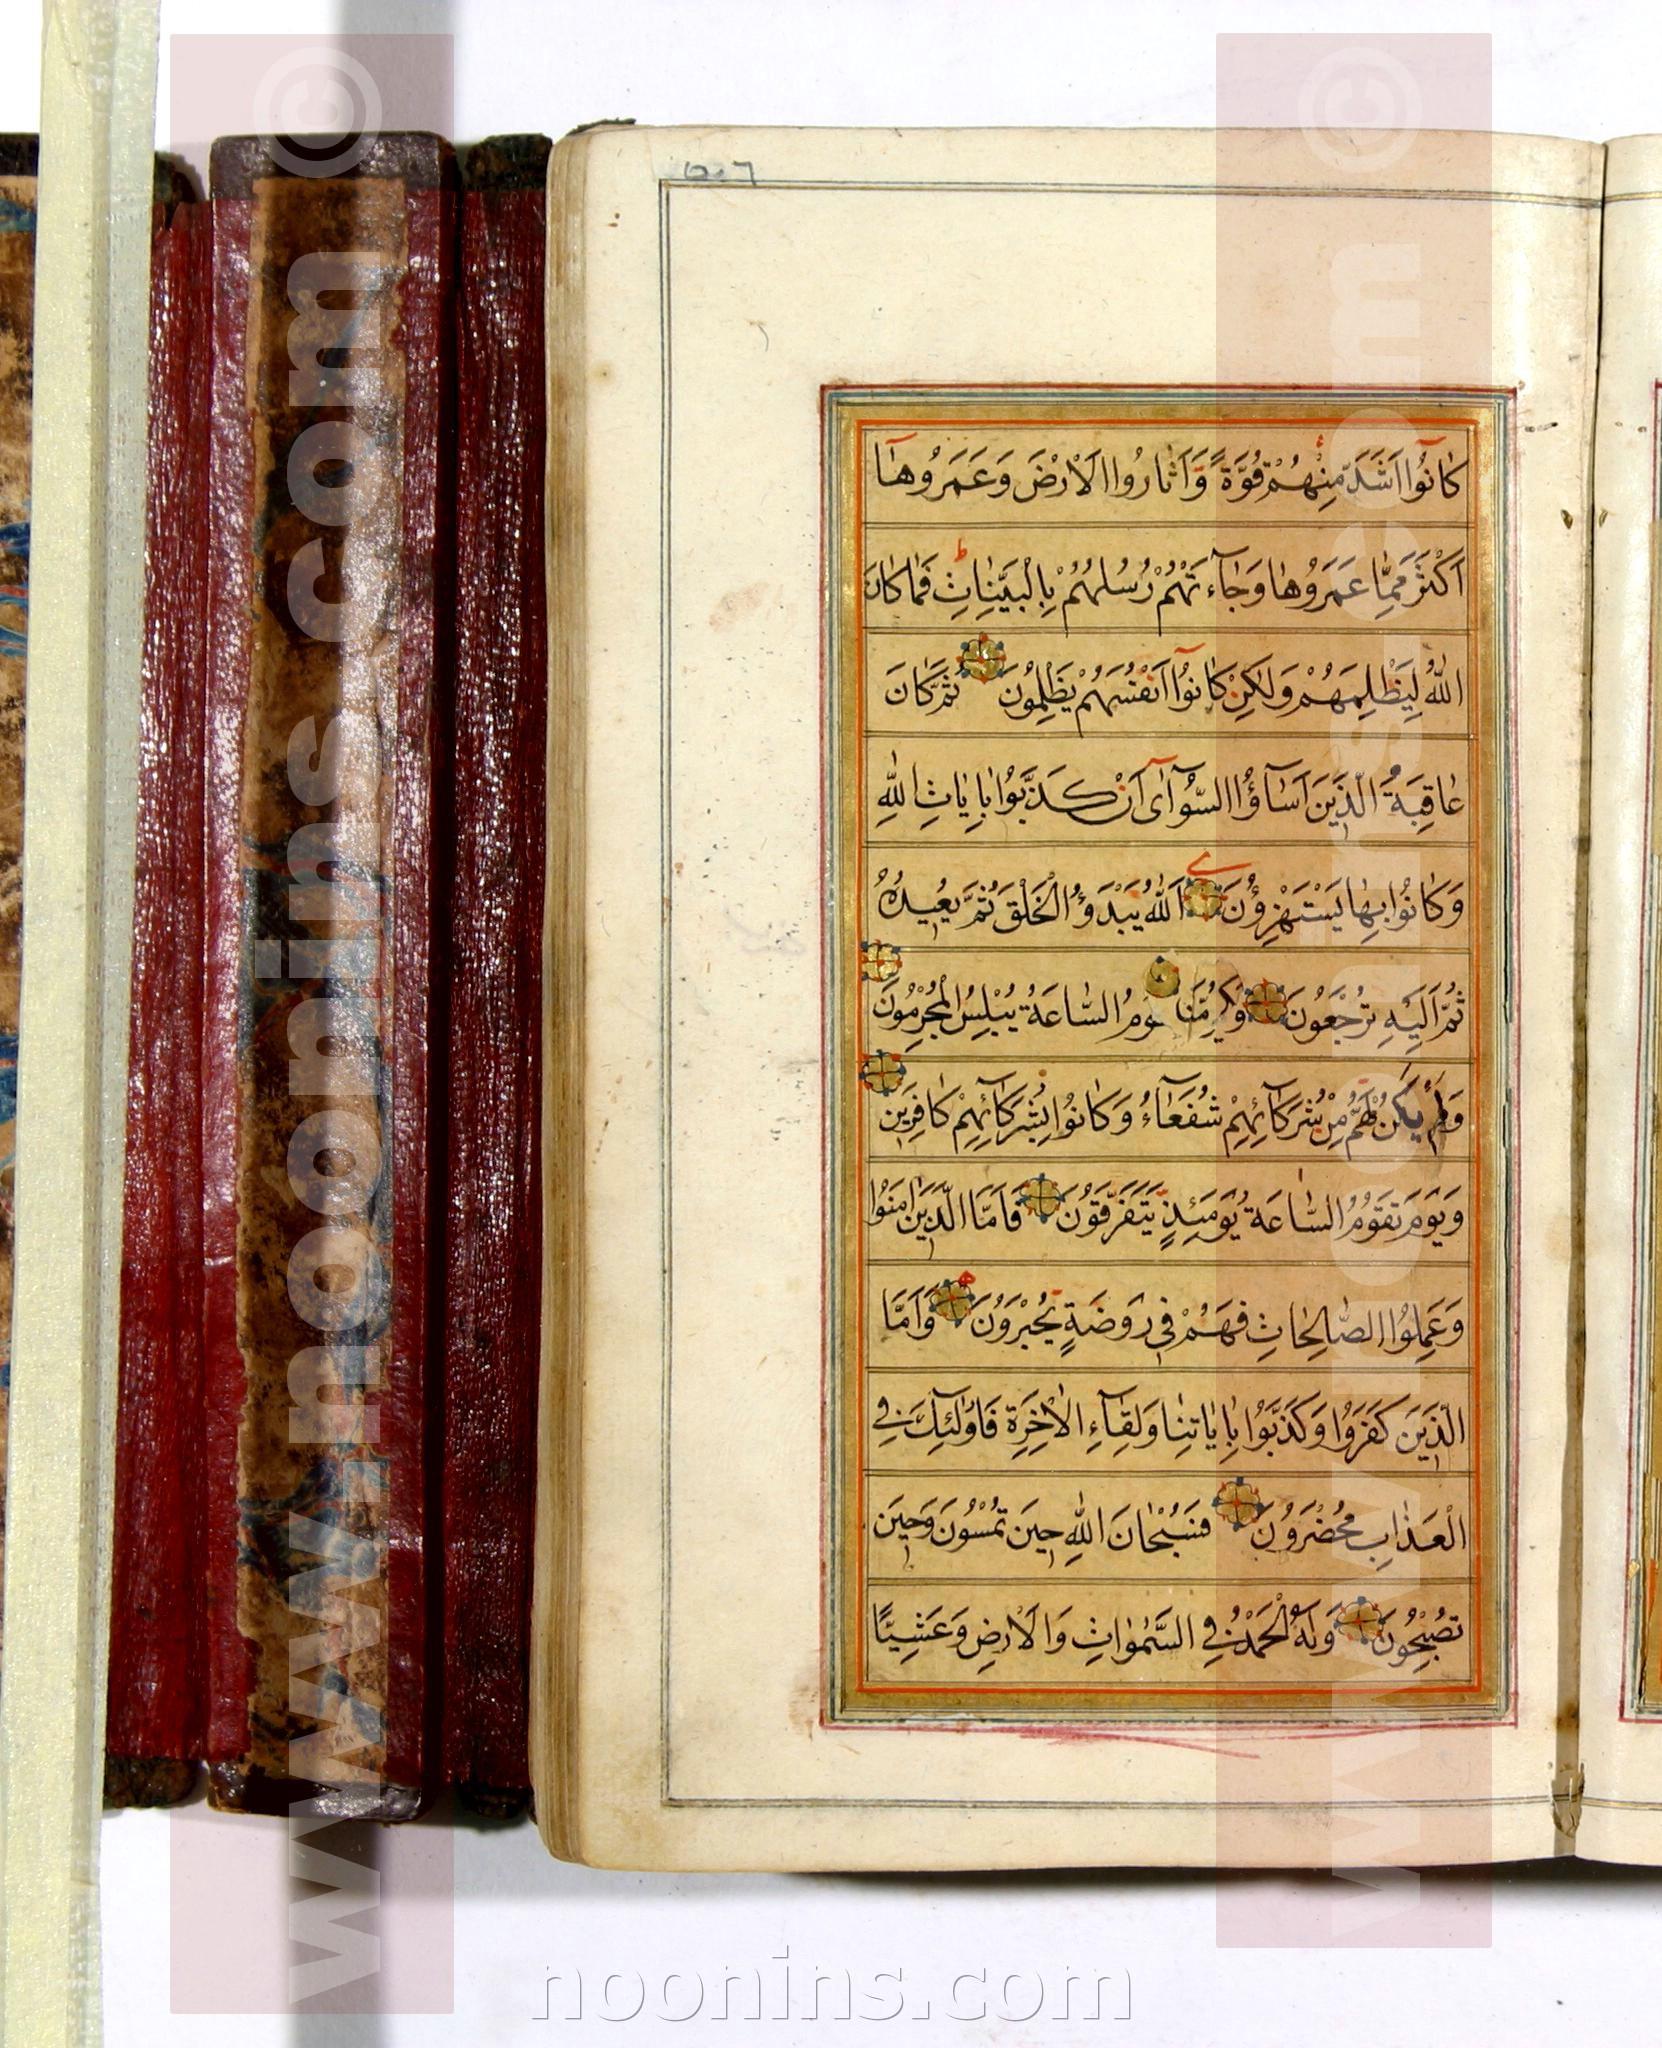 ۵۰۶
كَانُوا اَشَدَّ مِنْهُمْ قُوَّةً وَاَثَارُوا الْاَرْضَ وَعَمَرُوهَا
اَكْثَرَ مِمَّا عَمَرُوهَا وَجَاءَتْهُمْ رُسُلُهُمْ بِالْبَيِّنَاتِ فَمَا كَانَ
اللّٰهُ لِيَظْلِمَهُمْ وَلٰكِنْ كَانُوا اَنْفُسَهُمْ يَظْلِمُونَ ثُمَّ كَانَ
عَاقِبَةُ الَّذِينَ اَسَاؤُا السُّوآٰى اَنْ كَذَّبُوا بِاٰيَاتِ اللّٰهِ
وَكَانُوا بِهَا يَسْتَهْزِؤُنَ اَللّٰهُ يَبْدَؤُ الْخَلْقَ ثُمَّ يُعِيدُهُ
ثُمَّ اِلَيْهِ تُرْجَعُونَ السَّاعَةُ يُبْلِسُ الْمُجْرِمُونَ
وَلَمْ يَكُنْ لَهُمْ مِنْ شُرَكَائِهِمْ شُفَعَاءُ وَكَانُوا بِشُرَكَائِهِمْ كَافِرِينَ
وَيَوْمَ تَقُومُ السَّاعَةُ يَوْمَئِذٍ يَتَفَرَّقُونَ فَاَمَّا الَّذِينَ اٰمَنُوا
وَعَمِلُوا الصَّالِحَاتِ فَهُمْ فِي رَوْضَةٍ يُحْبَرُونَ وَاَمَّا
الَّذِينَ كَفَرُوا وَكَذَّبُوا بِاٰيَاتِنَا وَلِقَاءِ الْاٰخِرَةِ فَاُولٰئِكَ فِي
الْعَذَابِ مُحْضَرُونَ فَسُبْحَانَ اللّٰهِ حِينَ تُمْسُونَ وَحِينَ
تُصْبِحُونَ وَلَهُ الْحَمْدُ فِي السَّمٰوَاتِ وَالْاَرْضِ وَعَشِيًّا
www.noonins.com ©
www.noonins.com ©
noonins.com